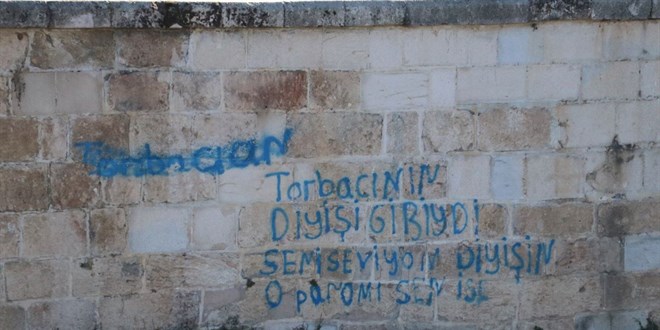 Torbacının
DİYİŞİ GİBİYDİ
SENİ SEVİYOM DİYİŞİN
O PARAMI SEN İSE